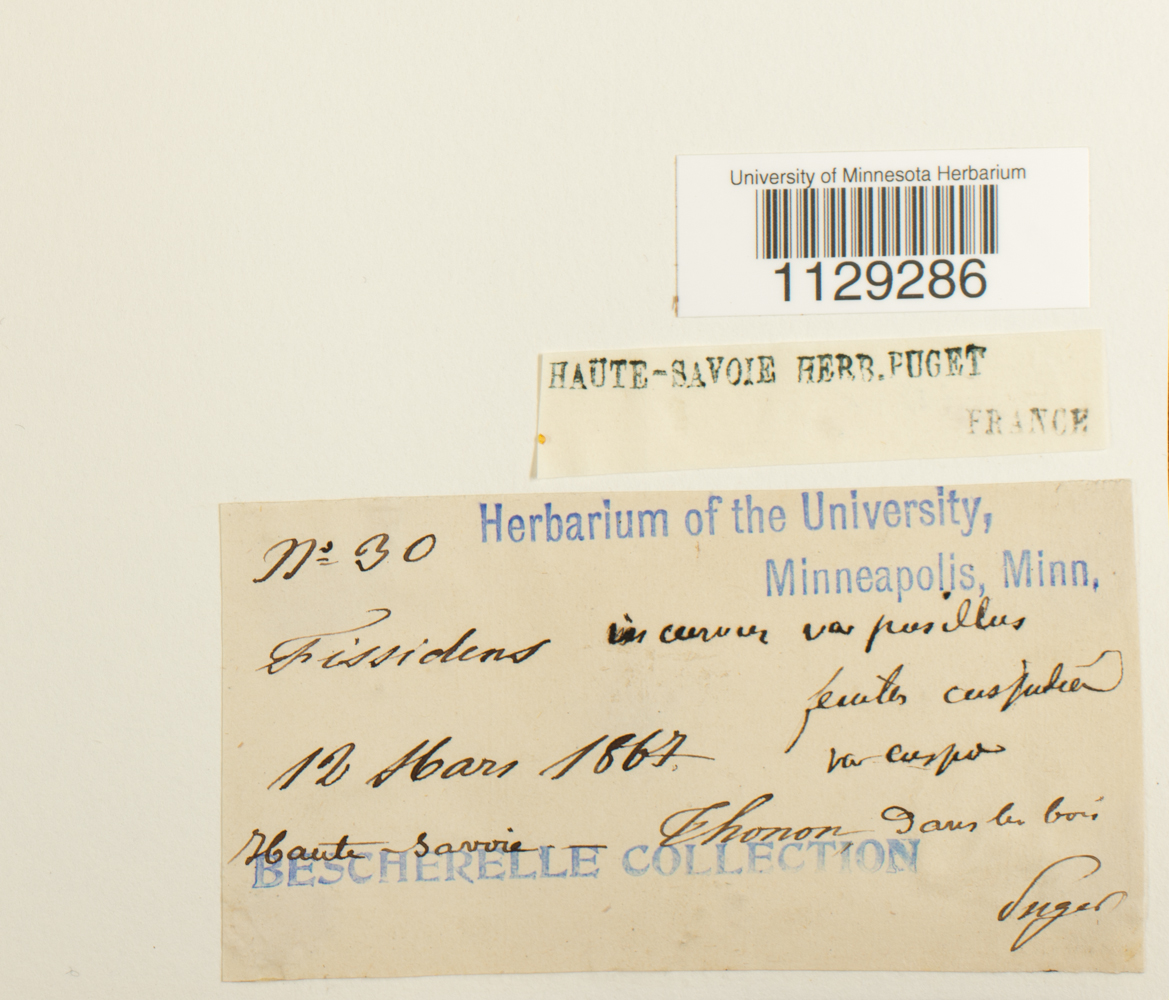 University of Minnesota Herbarium
1129286
HAUTE-SAVOIE HERB.PUGET
FRANCE
Herbarium of the University,
Minneapolis, Minn.
Nº 30
Fissidens incurvus var pusillus
12 Mars 1867
Haute-Savoie — Thonon Dans les bois
BESCHERELLE COLLECTION
Puget